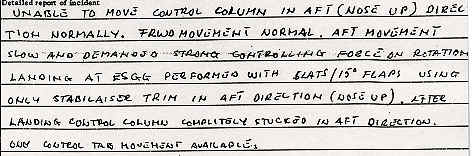 Detailed report of incident
UNABLE TO MOVE CONTROL COLUMN IN AFT (NOSE UP) DIREC
TION NORMALLY. FRWD MOVEMENT NORMAL. AFT MOVEMENT
SLOW AND DEMANDED STRONG CONTROLLING FORCE ON ROTATION
LANDING AT ESGG PERFORMED WITH SLATS/15° FLAPS USING
ONLY STABILAISER TRIM IN AFT DIRECTION (NOSE UP). AFTER
LANDING CONTROL COLUMN COMPLITELY STUCKED IN AFT DIRECTION.
ONLY CONTROL TAB MOVEMENT AVAILABLE.